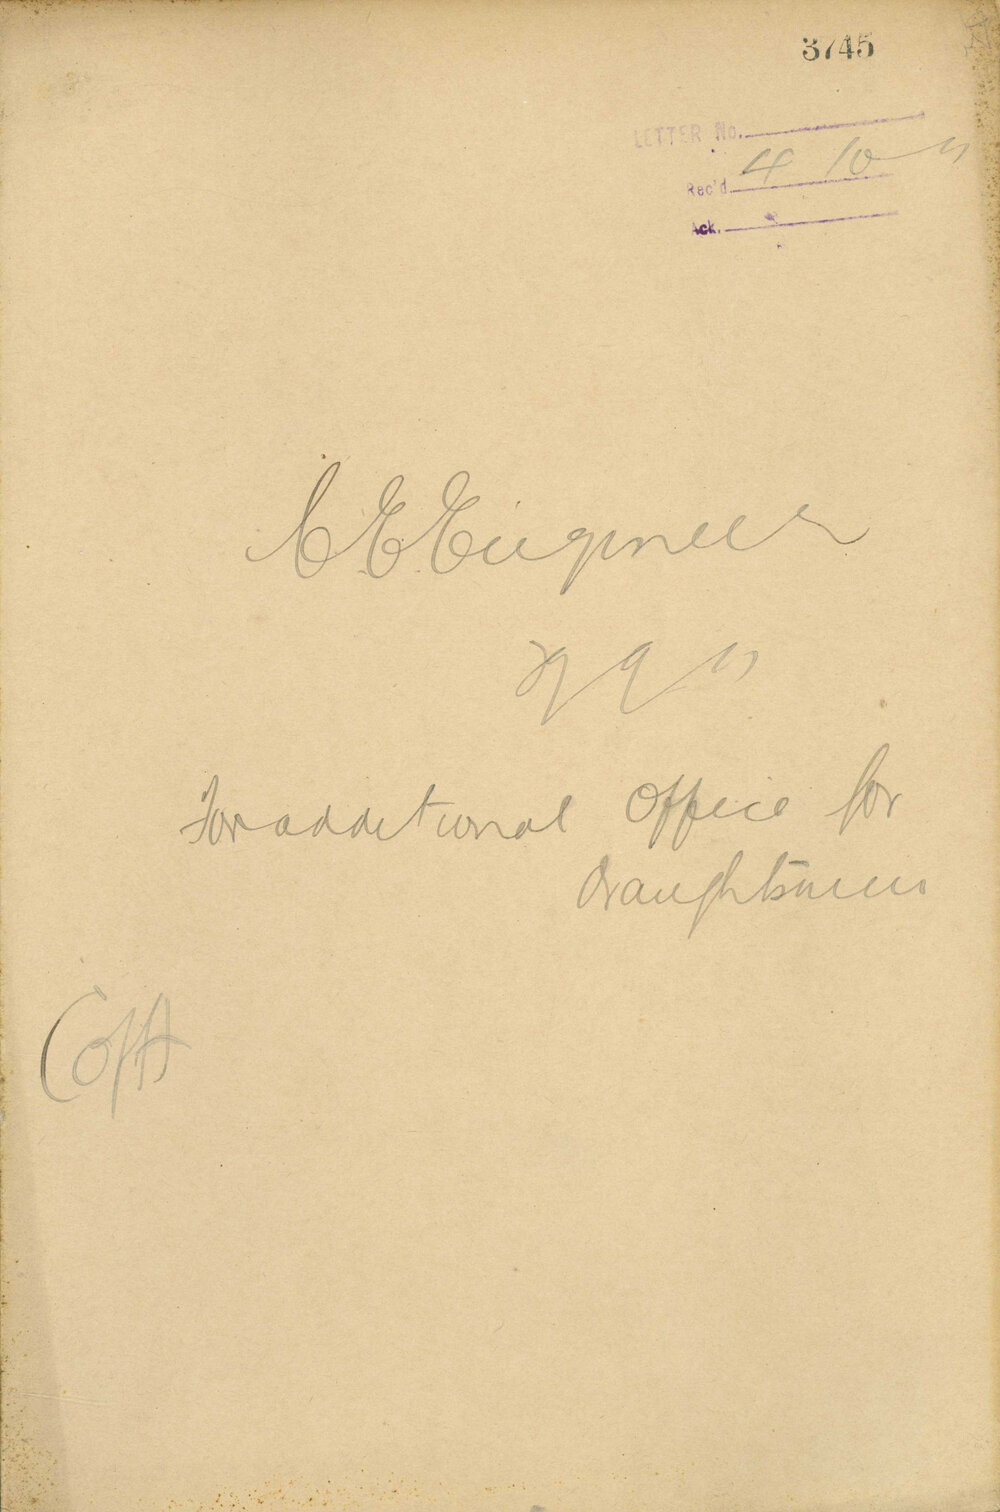 3745
LETTER No.
Rec'd. 4 10 11
Ack.
C E Engineer
29 9 11
For additional Office for
Draughtsmen